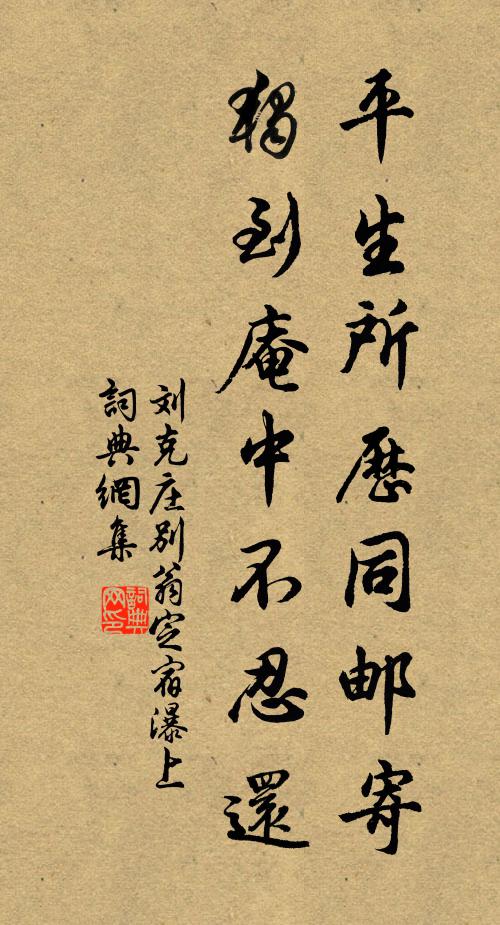 平生所歷同邮寄
獨到庵中不忍還
刘克庄別翁定宿瀑上
詞典網集
詞典网印